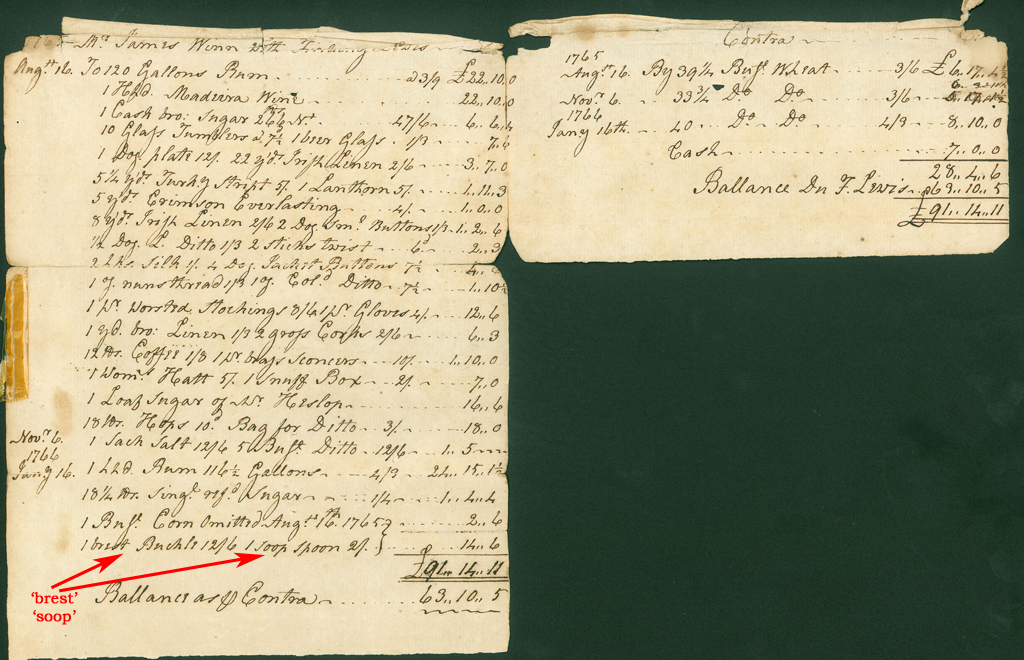 Mr. James Winn with Fielding Lewis
Augst. 16. To 120 Gallons Rum a 3/9 £22..10..0
1 Hhd. Madeira Wine 22..10..0
1 Cask bro: Sugar Nt. 47/6 6..6..
10 Glass Tumblers a 7½ 1 beer Glass 1/3 7..6
1 Doz plate 12/. 22 yds. Irish Linen 2/6 3..7..0
5¼ yds. Turky Stript 5/. 1 Lanthorn 5/. 1..11..3
5 yds. Crimson Everlasting 4/. 1..0..0
8 yds. Irish Linen 2/6 2 Doz Sm. Buttons 1/3 1..2..6
½ Doz L. Ditto 1/3 2 sticks twist 6d 2..3
2 hks. Silk 1/. 4 Doz Jacket Buttons 7½ 4..
1 oz. nuns thread 1/3 1 oz. Cold. Ditto 7½ 1..10½
1 pr. Worsted Stockings 8/6 1 pr. Gloves 4/. 12..6
1 yd. bro: Linen 1/3 2 gross Corks 2/6 6..3
12 lbs. Coffee 1/8 1 pr. brass Sconcers 10/. 1..10..0
1 Wom. Hatt 5/. 1 Snuff Box 2/. 7..0
1 Loaf Sugar of Mr. Heslop 16..6
18 lbs. Hops 10d. Bag for Ditto 3/. 18..0
Novr. 6. 1 Sack Salt 12/6 5 Bush. Ditto 12/6 1..5
1766
Jany 16. 1 hhd Rum 116½ Gallons 4/3 24..15..1½
18¼ lbs. Singl. refd. Sugar 1/4 1..4..4
1 Bush. Corn Omitted Augst. 16th. 1765 2..6
1 brest Buckle 12/6 1 Soop Spoon 2/. 14..6
£91..14..11
Ballance as Contra 63..10..5
'brest'
'soop'
Contra
1765
Augst. 16. By 39¼ Bush. Wheat 3/6 £6..17..4½
Novr. 6. 33¾ Do Do 3/6
1766
Jany 16th. 40 Do Do 4/3 8..10..0
Cash 7..0..0
28..4..6
Ballance Du F. Lewis 63..10..5
£91..14..11